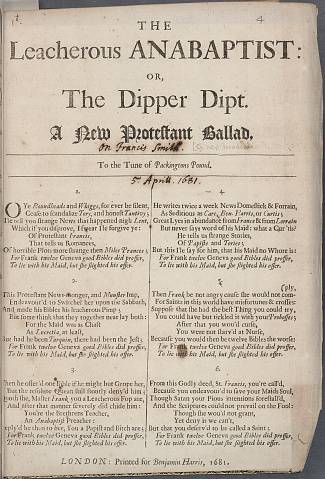 4
THE
Leacherous ANABAPTIST:
OR,
The Dipper Dipt.
A New Protestant Ballad,
On Francis Smith.
To the Tune of Packingtons Pound.
5 April. 1681.
1.
OYe Roundheads and Whiggs, for ever be silent,
Cease to scandalize Tory, and honest Tantivy;
He tell you strange News that happened nigh Lent,
Which if you disprove, I swear I'le forgive ye:
Of Protestant Francis,
That tells us Romances,
Of horrible Plots more strange then Miles Prances;
For Frank twelve Geneva good Bibles did proffer,
To lie with his Maid, but she slighted his offer.
2.
This Protestant News-monger, and Monster Imp,
Endeavour'd to Switchel her upon the Sabbath,
And made his Bibles his leacherous Pimp
But some think that they together near lay both:
For the Maid was as Chast
As Lucretia, at least,
But had he been Tarquin, there had been the Jest;
For Frank twelve Geneva good Bibles did proffer,
To lie with his Maid, but she slighted his offer.
3.
Then he offer'd one Bible if he might but Grope her,
But the modest Quean still stoutly deny'd him;
Quoth she, Master Frank, you a Leacherous Fop are,
And after that manner severely did chide him:
You're the forlorn Teacher,
An Anabaptist Preacher:
Reply'd he then to her, You a Pupil and Bitch are;
For Frank twelve Geneva good Bibles did proffer,
To lie with his Maid, but she slighted his offer.
4.
He writes twice a week News Domestick & Forrain,
As Seditious as Care, Ben. Harris, or Curtis;
Great Lyes in abundance from France & from Lorrain
But never says word of his Maid: what a Cur 'tis!
He tells us strange Stories,
Of Papists and Tories;
But this I'le say for him, that his Maid no Whore is:
For Frank twelve Geneva good Bibles did proffer,
To lie with his Maid, but she slighted his offer.
5.
Then Frank be not angry cause she would not com-
ply,
For Saints in this world have misfortunes & crosses
Suppose that she had the best Thing you could try,
You could have but tickled it with your
After that you wou'd curse,
You were not starv'd at Nurse,
Because you would then be twelve Bibles the worse:
For Frank twelve Geneva good Bibles did proffer,
To lie with his Maid, but she slighted his offer.
6.
From this Godly deed, St. Francis, you're call'd,
Because you endeavour'd to save your Maids Soul,
Though Satan your Pious intentions forestall'd,
And the Scriptures could not prevail on the Fool:
Though she wou'd not grant,
Yet deny it we can't,
But that you deserv'd to be called a Saint:
For Frank twelve Geneva good Bibles did proffer,
To lie with his Maid, but she slighted his offer.
LONDON: Printed for Benjamin Harris, 1681.